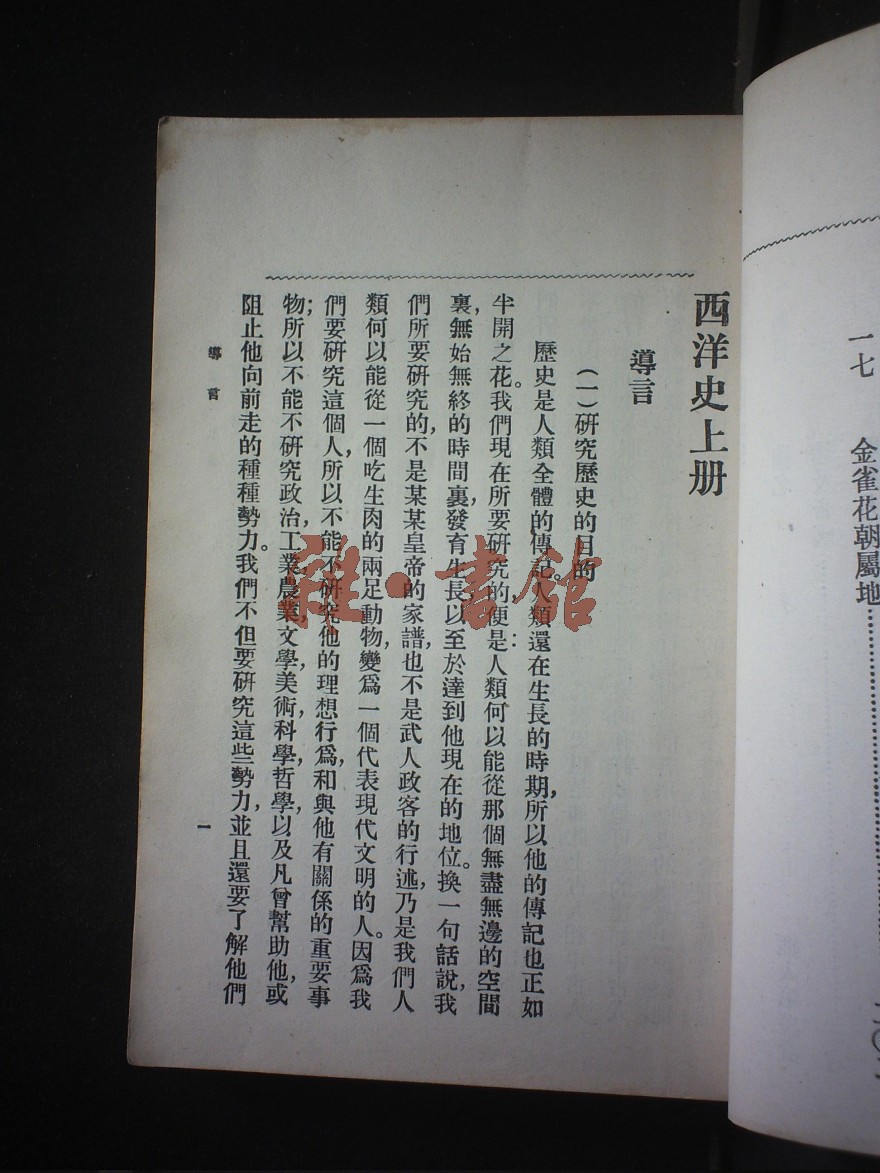 一七 金雀花朝屬地
西洋史上册
導言
(一)研究歷史的目的
歷史是人類全體的傳記。人類還在生長的時期,所以他的傳記也正如
半開之花。我們現在所要研究的,便是:人類何以能從那個無盡無邊的空間
裏,無始無終的時間裏,發育生長,以至於達到他現在的地位。換一句話說,我
們所要研究的,不是某某皇帝的家譜,也不是武人政客的行述,乃是我們人
類何以能從一個吃生肉的兩足動物,變爲一個代表現代文明的人。因爲我
們要研究這個人,所以不能不研究他的理想行爲,和與他有關係的重要事
物;所以不能不研究政治,工業,農業,文學,美術,科學,哲學,以及凡曾幫助他,或
阻止他向前走的種種勢力。我們不但要研究這些勢力,並且還要了解他們
導言
一
雜·書館